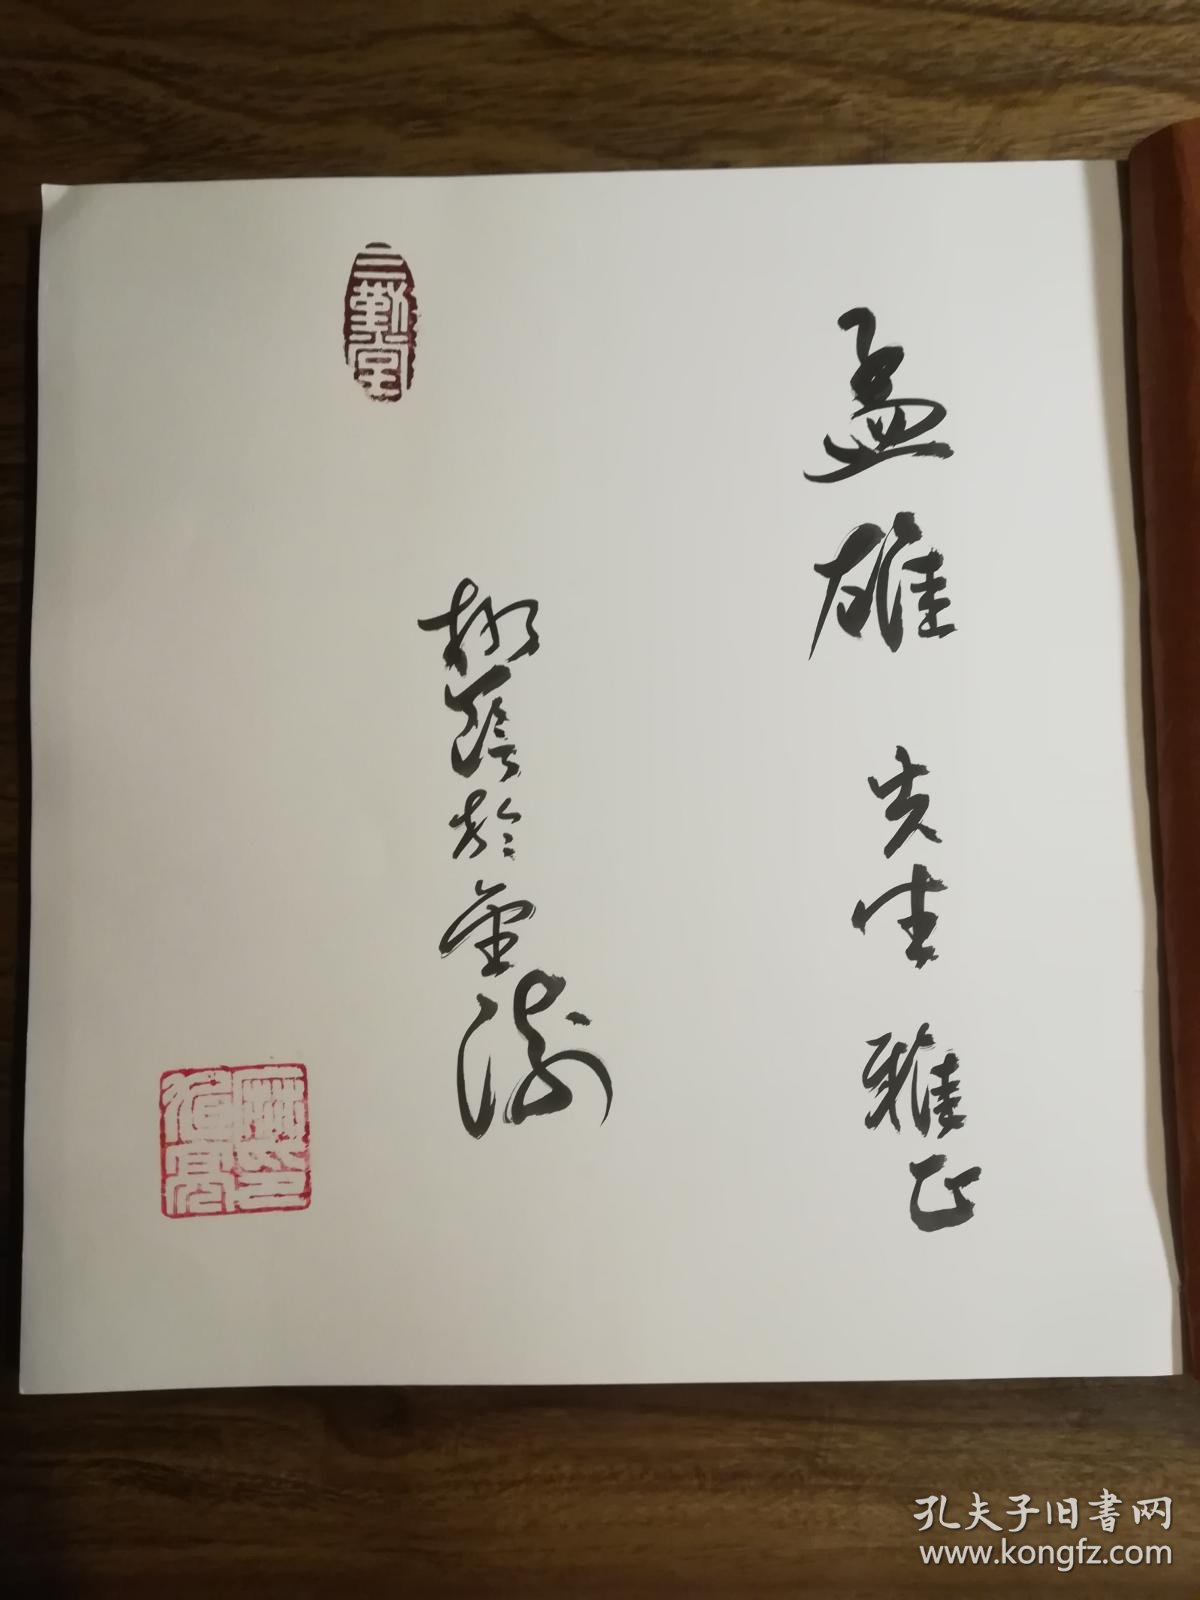 孟雄 先生 雅正
柳蔭於金
三勤堂
孔夫子旧书网
www.kongfz.com